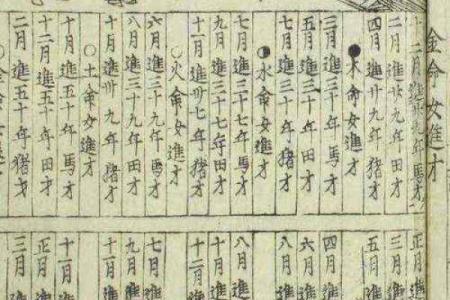 金命女進才
十二月進卅九年馬才
二月進卅九年田才
四月進卅九年猪才
●木命女進才
三月進三十年馬才
五月進三十年田才
七月進三十年猪才
◐水命女進才
七月進三十七年馬才
九月進三十七年田才
十一月進卅七年猪才
○火命女進才
六月進三十九年馬才
八月進三十九年田才
十月進卅九年猪才
○土命女進才
十月進五十年馬才
十二月進五十年田才
二月進五十年猪才
正月進
三月進
五月
四月進
六月進
八月進
八月進
十月進
十二月
七月進
九月進
十一月
十一月進
正月進
三月進